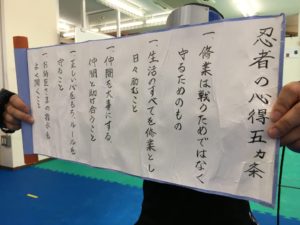 忍者の心得五ヵ条
一 修業は戦うためではなく
守るためのもの
一 生活のすべてを修業とし
日々励むこと
一 仲間を大事にする
仲間と助け合うこと
一 正しい心をもち、ルールを
守ること
一 お師匠さまの指示を
よく聞くこと